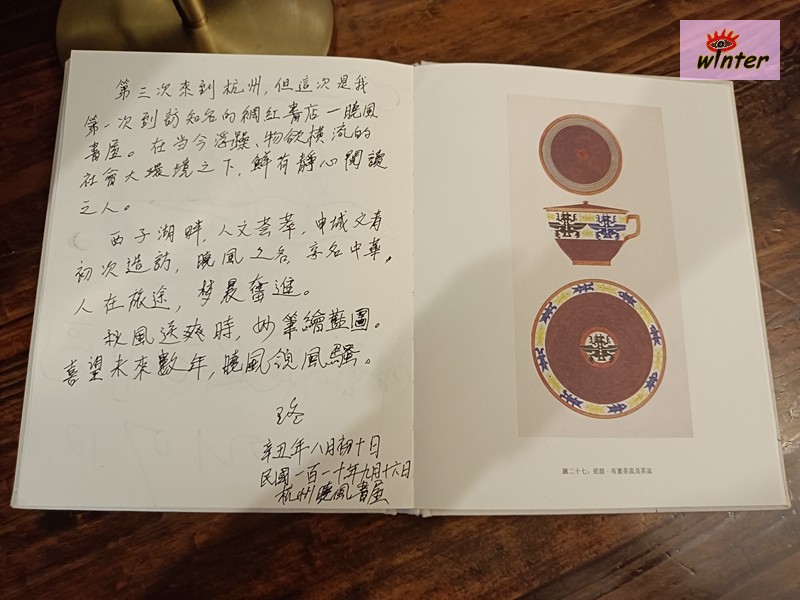 winter
第三次來到杭州,但這次是我
第一次到訪知名的網紅書店—曉風
書屋。在當今浮躁、物欲橫流的
社會大環境之下,鮮有靜心閱讀
之人。
西子湖畔,人文薈萃,申城文青
初次造訪,曉風之名,享名中華,
人在旅途,梦晨奮進。
秋風送爽時,妙筆繪藍圖。
喜望未來數年,曉風領風騷。
辛丑年八月初十日
民國一百一十年九月十六日
杭州曉風書屋
圖二十七:瓷器·有蓋茶盅及茶盅